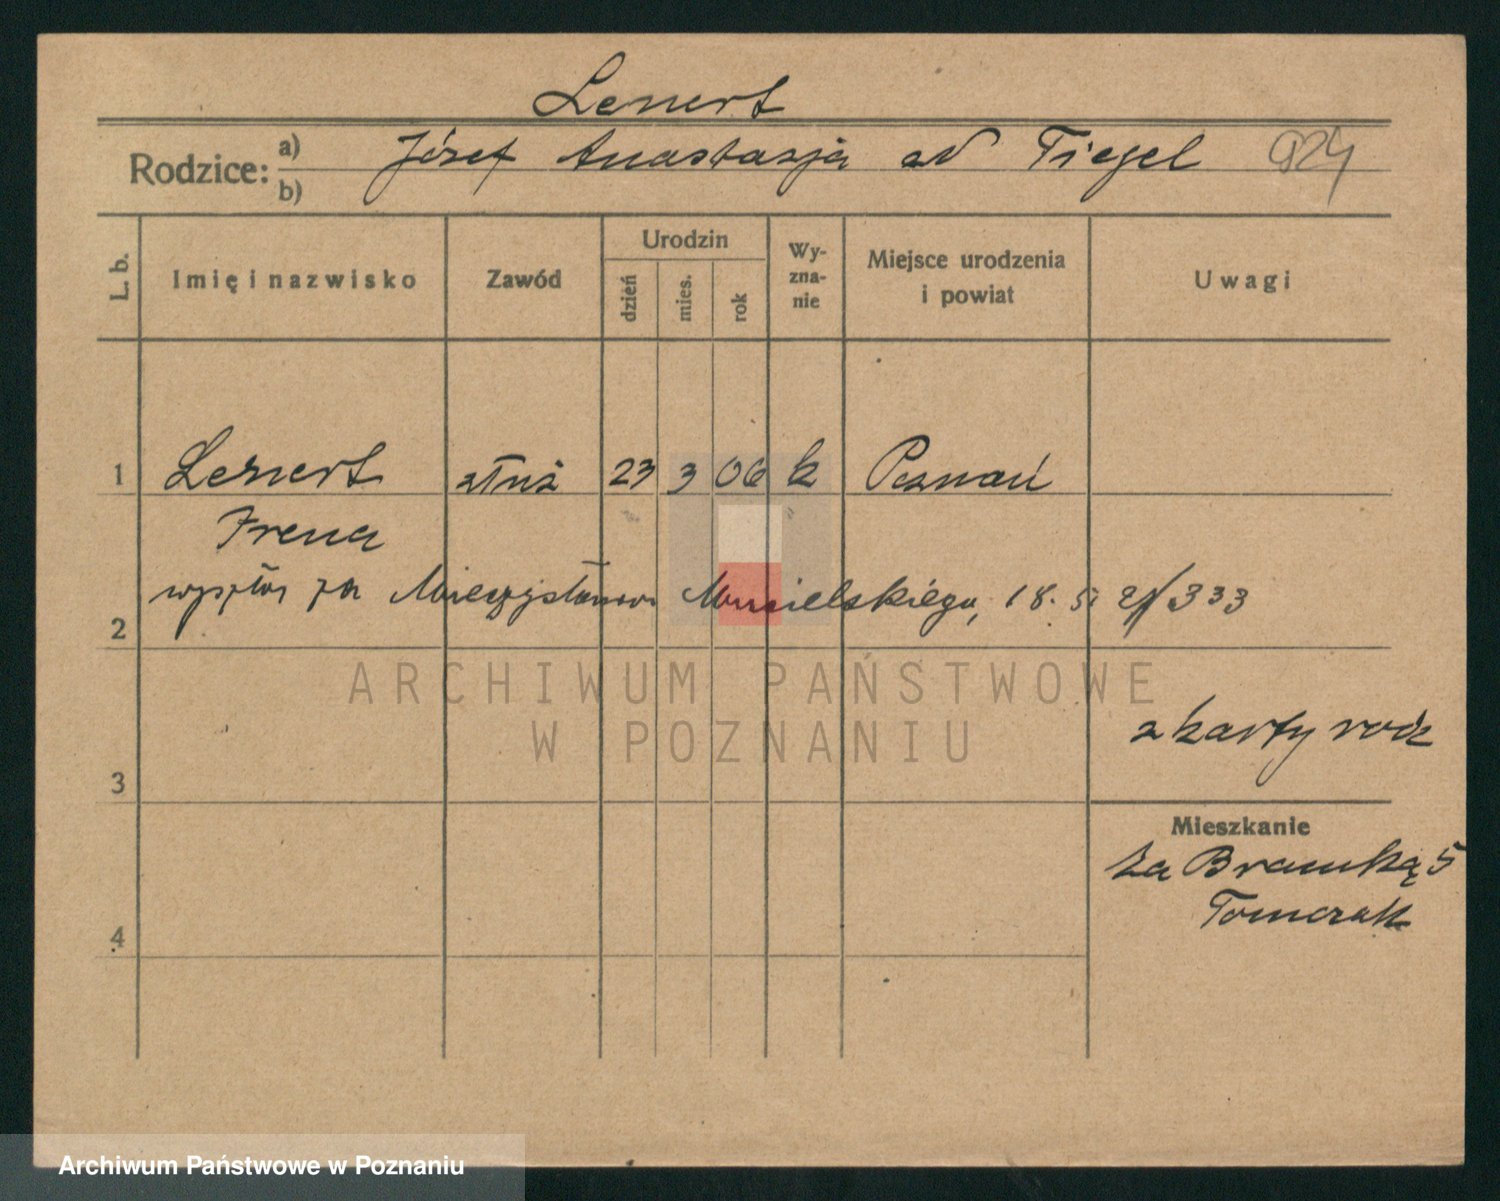 Lenert
Rodzice: a) b) Józef Anastazja zd Tiegel 924
L. b. Imię i nazwisko Zawód Urodzin dzień mies. rok Wy-zna-nie Miejsce urodzenia i powiat Uwagi
1 Lenert służ 23 3 06 k Poznań
Irena
za Mieczysława 18. 5 333
2
ARCHIWUM PAŃSTWOWE
W POZNANIU
z karty rodz
3
Mieszkanie
Za Bramką 5
Tomczak
4
Archiwum Państwowe w Poznaniu